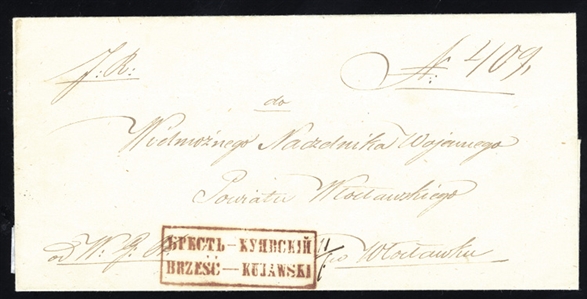 J: R:
№: 409,
do
Wielmożnego Naczelnika Wojennego
Powiatu Włocławskiego
od W. J. w Włocławku
БРЕСТЬ—КУЯВСКІЙ
BRZEŚĆ—KUJAWSKI